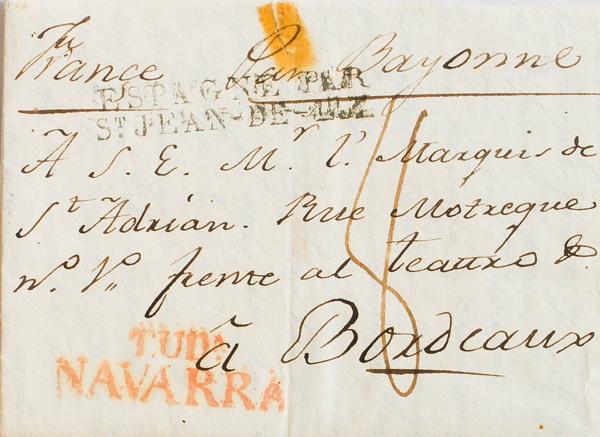 France Par Bayonne
ESPAGNE PAR
ST JEAN-DE-LUZ
A S. E. Mr. l. Marquis de
St. Adrian. Rue Motreque
no. 1o. frente al teauro &.
à Bordeaux
TUDA
NAVARRA